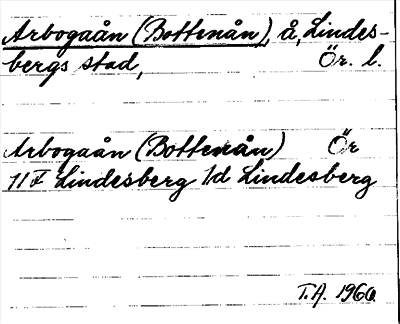 Arbogaån (Bottenån), å, Lindes-
bergs stad, Ör. l.
Arbogaån (Bottenån) Ör
11F Lindesberg 1/d Lindesberg
T.A. 1960